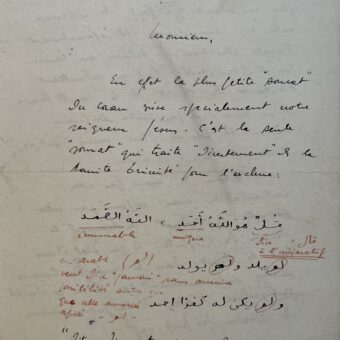 Monsieur,
En effet la plus petite "sourat"
du coran vise spécialement notre
seigneur Jésus. C'est la seule
"sourat" qui traite "Directement" de la
Sainte Trinité pour l'exclure:
قُلْ هُوَ اللَّهُ أَحَد ، اللَّهُ الصَّمَد
immuable unique Dis قال
à l'impératif
لم يلد ولم يولد
en arabe (لم)
veut dire "jamais" sans aucune
possibilité autre
que elle annoncée
après - لم -
ولم يكن له كفؤا احد